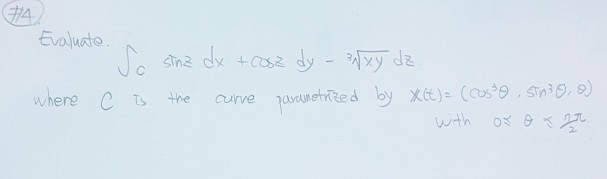 #4
Evaluate.
∫_C sinz dx + cosz dy - ³√xy dz
where C is the curve parametrized by x(t) = (cos³θ, sin³θ, θ)
with 0 ≤ θ ≤ 7π/2